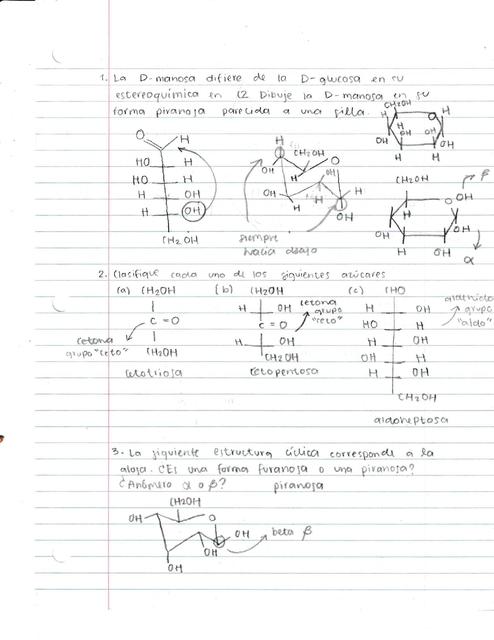 1. La D-manosa difiere de la D-glucosa en su
estereoquímica en C2 Dibuje la D-manosa en su
forma piranosa parecida a una silla.
CH2OH
H
O
H
H
H
OH
OH
OH
OH
H
H
O
H
HO
H
HO
H
H
OH
H
OH
CH2OH
H
CH2OH
O
OH
OH
OH
H
H
H
OH
siempre
hacia abajo
CH2OH
β
O
OH
H
OH
OH
H
OH
α
2. Clasifique cada uno de los siguientes azúcares
(a) CH2OH
C = O
CH2OH
cetona
grupo "ceto"
cetotriosa
(b) CH2OH
H
OH
C = O
H
OH
CH2OH
cetona
grupo
"ceto"
cetopentosa
(c) CHO
H
OH
HO
H
H
OH
OH
H
H
OH
CH2OH
aldehido
grupo
"aldo"
aldoheptosa
3. La siguiente estructura cíclica corresponde a la
alosa. ¿Es una forma furanosa o una piranosa?
¿Anómero α o β?
piranosa
CH2OH
OH
O
OH
OH
OH
beta β